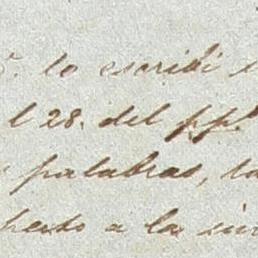 lo escribí
el 28. del pp.º
palabras, la
pecto a las